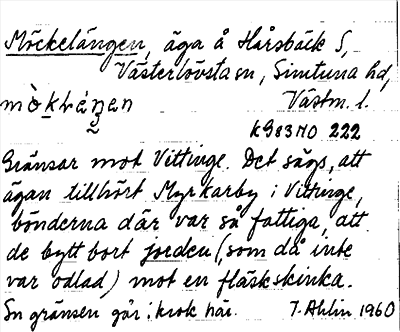 Möckelängen, äga å Hårsbäck S,
Västerlövsta sn, Simtuna hd,
Västm. l.
KG83 NO 222
Gränsar mot Vittinge. Det sägs, att
ägan tillhört Myrkarby i Vittinge,
bönderna där var så fattiga, att
de bytt bort jorden (som då inte
var odlad) mot en fläskskinka.
Sn gränsen går i krok här. T. Ahlin 1960